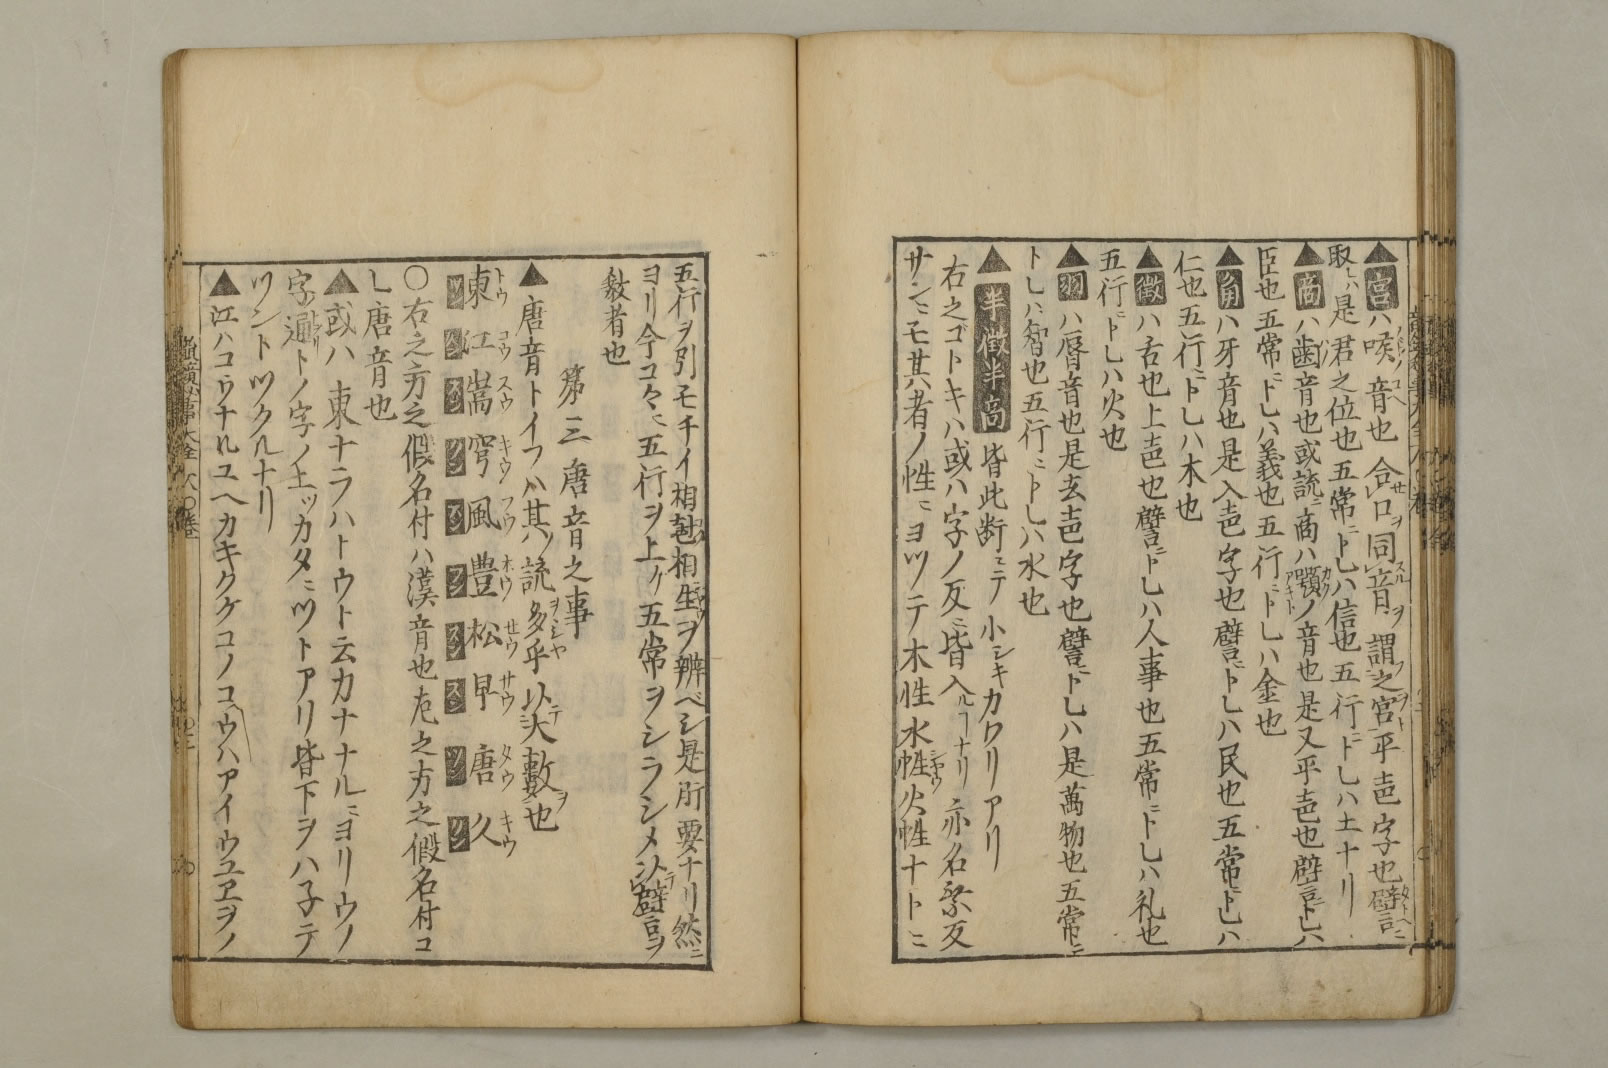 ▲宮ハ喉音也合口ヲ同音ヲ謂之宮平声字也譬ニ
取レハ是君之位也五常ニトレハ信也五行ニトレハ土ナリ
▲商ハ歯音也或説ニ商ハ顎ノ音也是又平声也譬ニトレハ
臣也五常ニトレハ義也五行ニトレハ金也
▲角ハ牙音也是入声字也譬ニトレハ民也五常ニトレハ
仁也五行ニトレハ木也
▲徴ハ舌也上声也譬ニトレハ人事也五常ニトレハ礼也
五行ニトレハ火也
▲羽ハ唇音也是去声字也譬ニトレハ是萬物也五常ニ
トレハ智也五行ニトレハ水也
▲半徴半商皆此断ニテ小シキカワリアリ
右之ゴトキハ或ハ字ノ反ニ皆入ルヿナリ亦名乗反
サンニモ其者ノ性ニヨツテ木性水性火性ナトニ
五行ヲ引モチイ相尅相生ヲ辨ベシ是所要ナリ然ニ
ヨリ今コヽニ五行ヲ上ケ五常ヲシラシメ以譬言ヲ
教者也
第三唐音之事
▲唐音トイフハ其説多乎以大數也
東江嵩穹風豊松早唐久
トウ コウ スウ キウ フウ ホウ サウ サウ タウ キウ
〇右之方之假名付ハ漢音也左之方之假名付コ
レ唐音也
▲或ハ東ナラハトウト云カナナルニヨリウノ
字通トノ字ノ上ツカタニツトアリ皆下ヲハ子テ
ツントツクルナリ
▲江ハコウナルユヘカキクケコノコウハアイウユヱヲノ